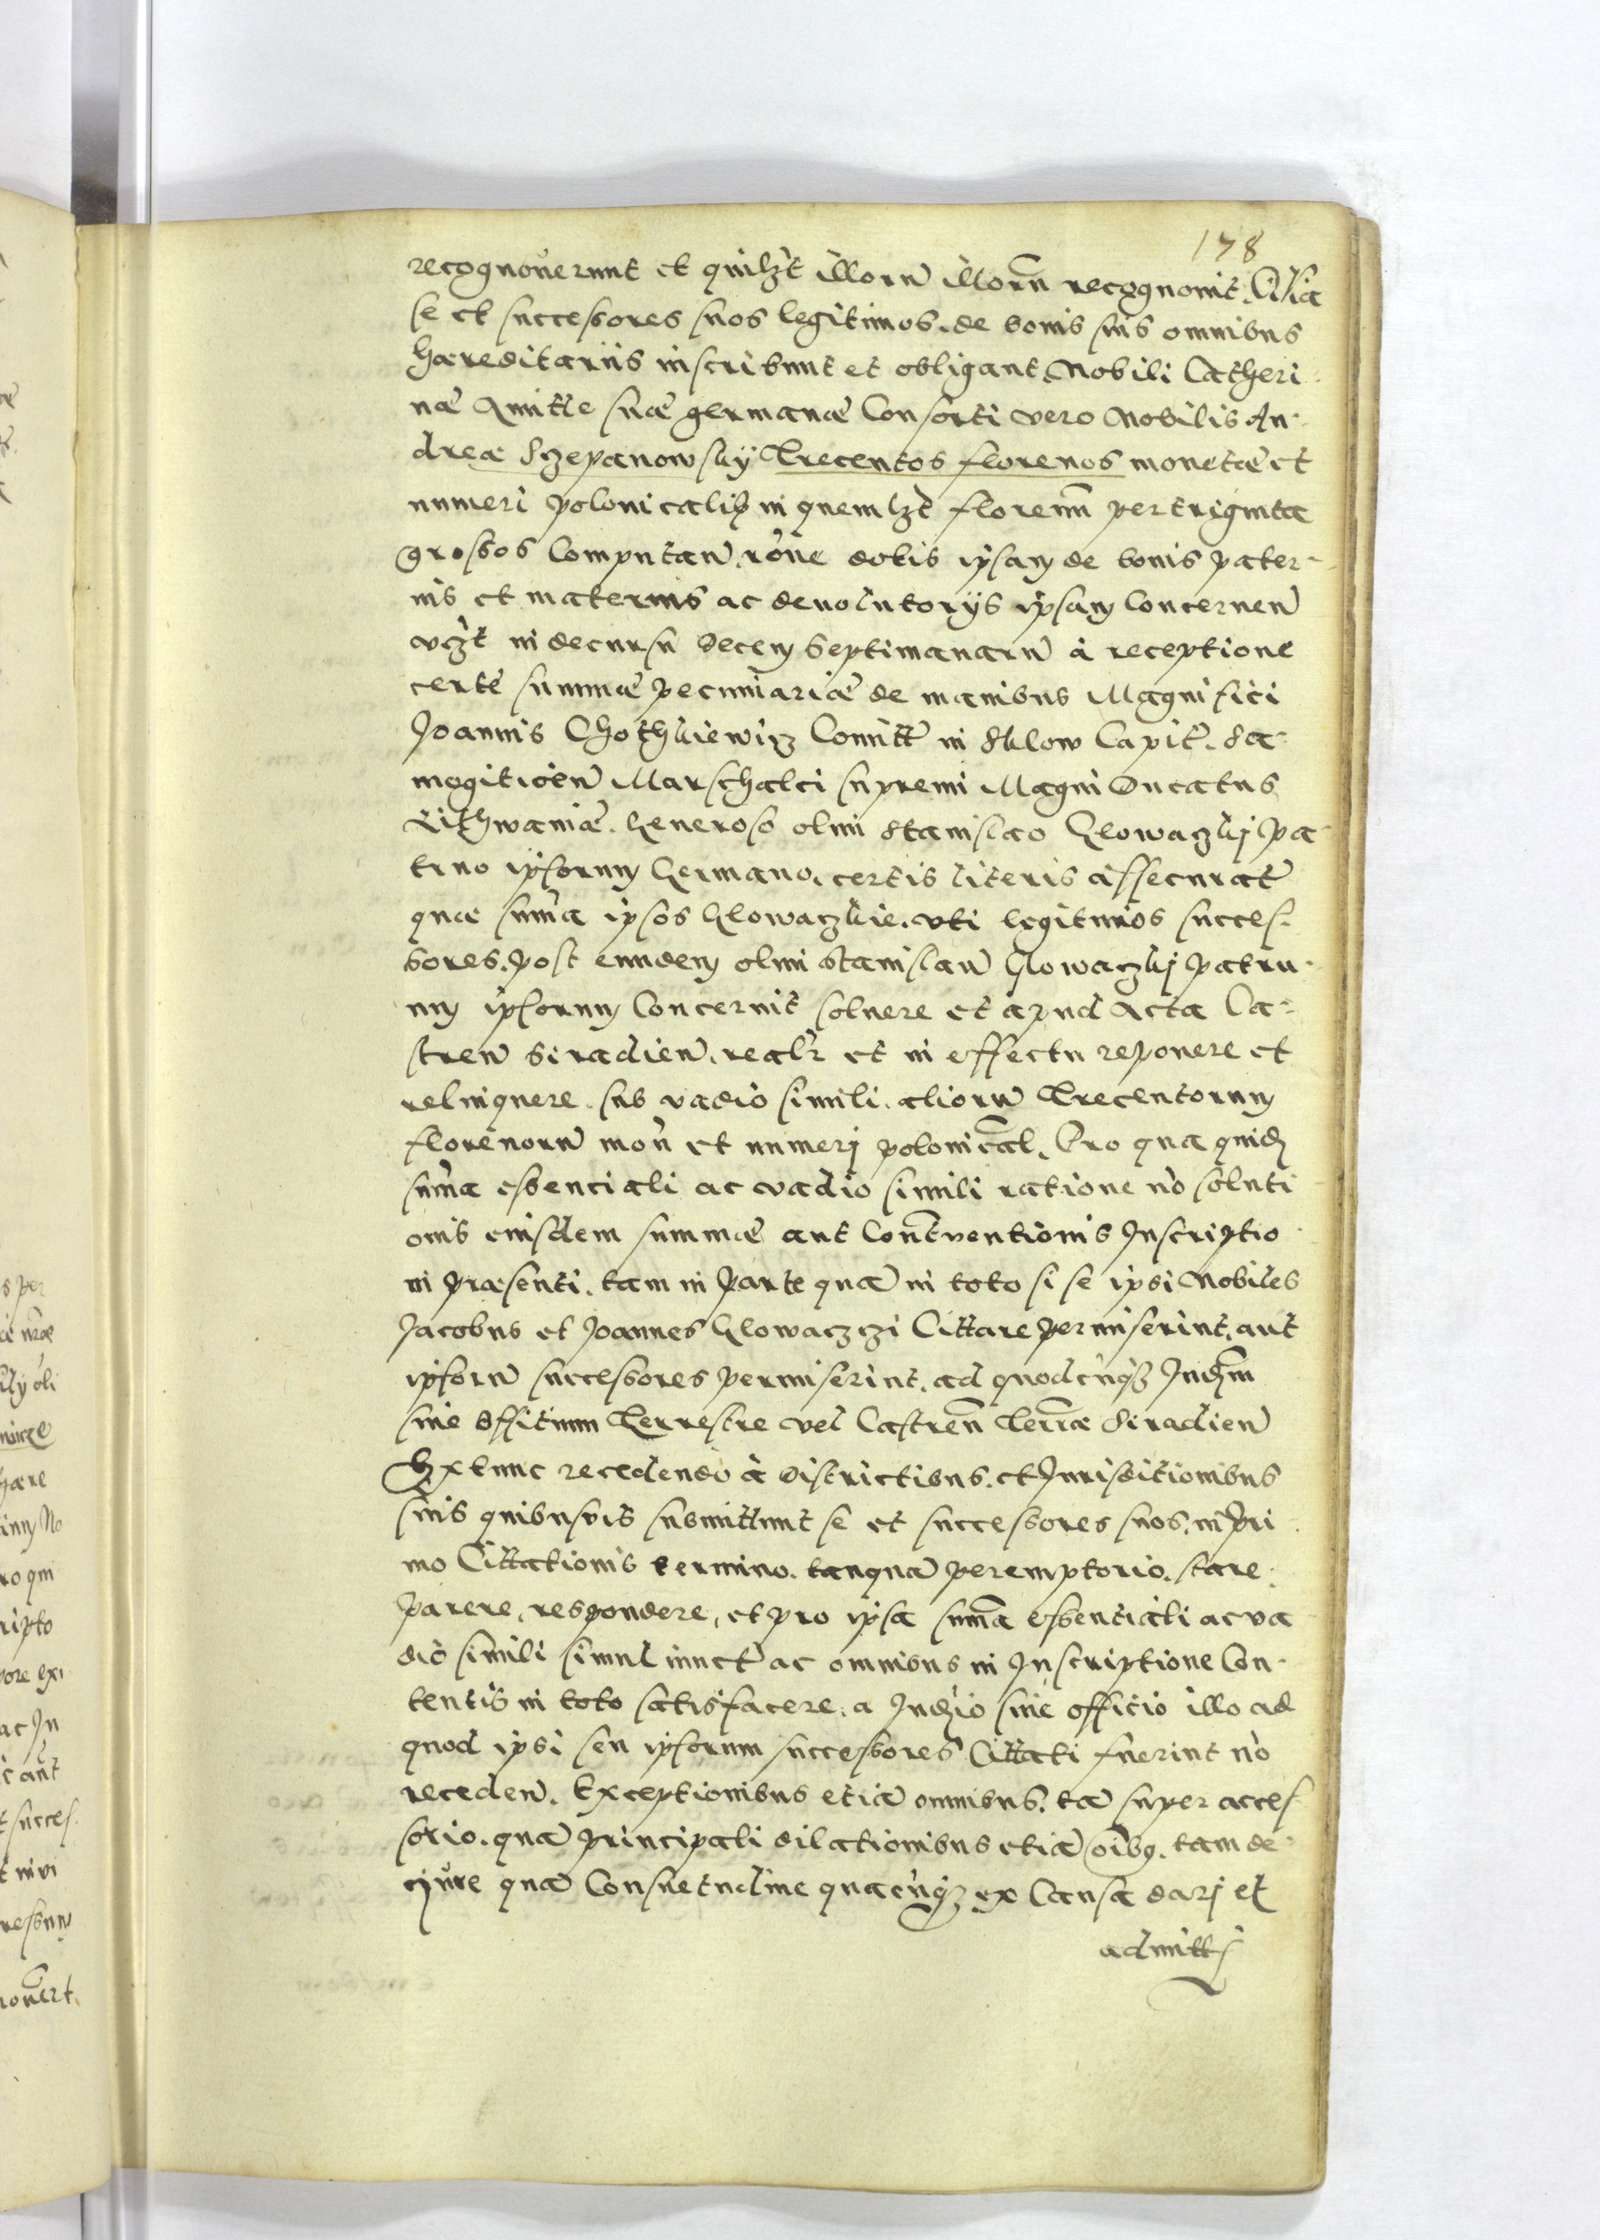 178
recognoverunt et quilzt illorũ illorũ recognovit. Quia
se et successores suos legitimos. de bonis suis omnibus
haereditariis inscribunt et obligant Nobili Catheri
nae Amitte suae germanae Consorti vero Nobilis An
dreae Szepanowsky Trecentos florenos monetae et
numeri polonicaliũ in quemlzt florenũ per triginta
grossos Computañ. rõne dotis ipsam de bonis pater
nis et maternis ac devolutoriis ipsam Concerneñ
vzt in decursu decem septimanarũ à receptione
certe summae pecuniariae de manibus Magnifici
Joannis Chothkiewicz Comitt in Sklow Capit. Sa
mogitieñ Marschalci supremi Magni Ducatus
Lithwaniae. Generoso olim Stanislao Glowaczkj pa
truo ipsorum Germano. certis literis assecurat
quae suma ipsos Glowaczkie. uti legitimos succes
sores. post eundem olim Stanislaũ Glowaczkj patru
um ipsorum Concernit solvere et apud Acta Ca
streñ Siradieñ. realr et in effectu reponere et
relinquere. sub vadio simili. aliorũ Trecentorum
florenorũ moñ et numerj polonical. Pro qua quid
suma essenciali ac vadio simili ratione nõ soluti
onis eiusdem summae aut Contventionis Inscriptio
ni praesenti. tam in parte quã in toto si se ipsi Nobiles
Jacobus et Joannes Glowaczczi Cittare permiserint, aut
ipsorũ successores permiserint. ad quodcunqz Judm
sive officium Terrestre vel Castreñ Terrae Siradieñ
Extunc recedendo à Districtibus. et Jurisditionibus
suis quibusvis submittunt se et successores suos. in pri
mo Cittationis termino. tanquã peremptorio. stare.
parere, respondere, et pro ipsa suma essentiali ac va
dio simili simul iunct ac omnibus in Inscriptione Con
tentis in toto satisfacere. a Judicio sive officio illo ad
quod ipsi seu ipsorum successores Cittati fuerint nõ
recedeñ. Exceptionibus etiã omnibus. tã super acces
sorio. quã principali dilationibus etiã oibus. tam de
iure quã Consuetudine quacunqz ex Causa darj et
admittj